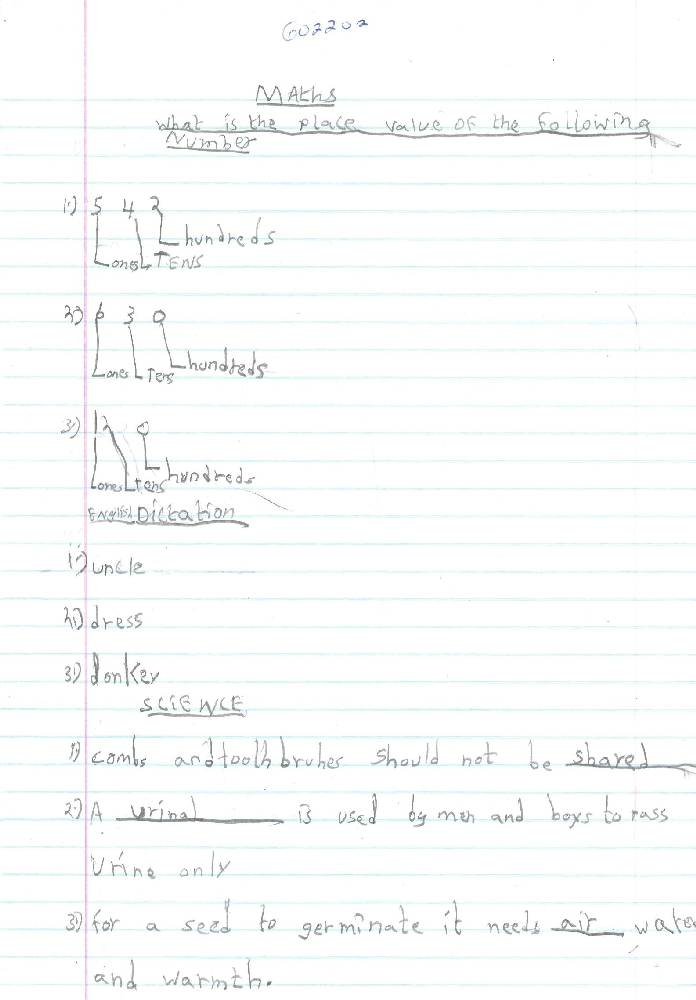 602202
MAths
What is the place value of the following
Number
1) 5 4 2
hundreds
ones TENS
2) 6 3 0
ones Tens hundreds
3) 12 0
ones tens hundreds
English Dictation
1) uncle
2) dress
3) donkey
SCIENCE
1) combs and tooth bruhes should not be shared
2) A urinal is used by men and boys to pass
Urine only
3) for a seed to germinate it needs air water
and warmth.